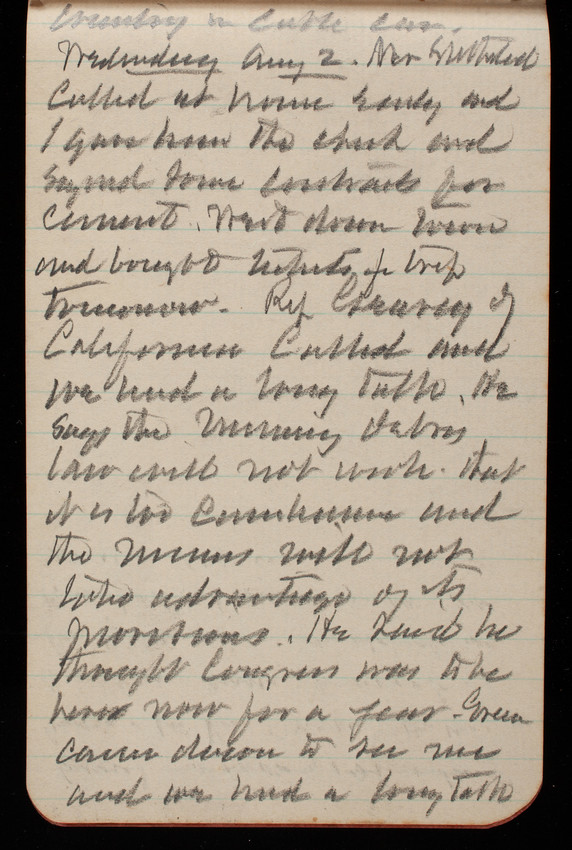 country in Cable Car.
Wednesday Aug 2. Mr
Called at house early and
I gave him the check and
Signed some contracts for
Cement. Went down town
and bought tickets for trip
tomorrow. Rep Geary of
California Called and
we had a long talk. He
Says the Mining Debris
law will not work. that
it is too Cumbersome and
the miners will not
take advantage of its
provisions. He said he
thought Congress was to be
here now for a year. Green
came down to see me
and we had a long talk